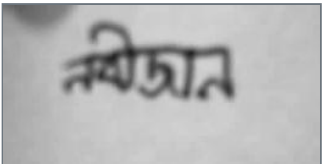 নবীজান